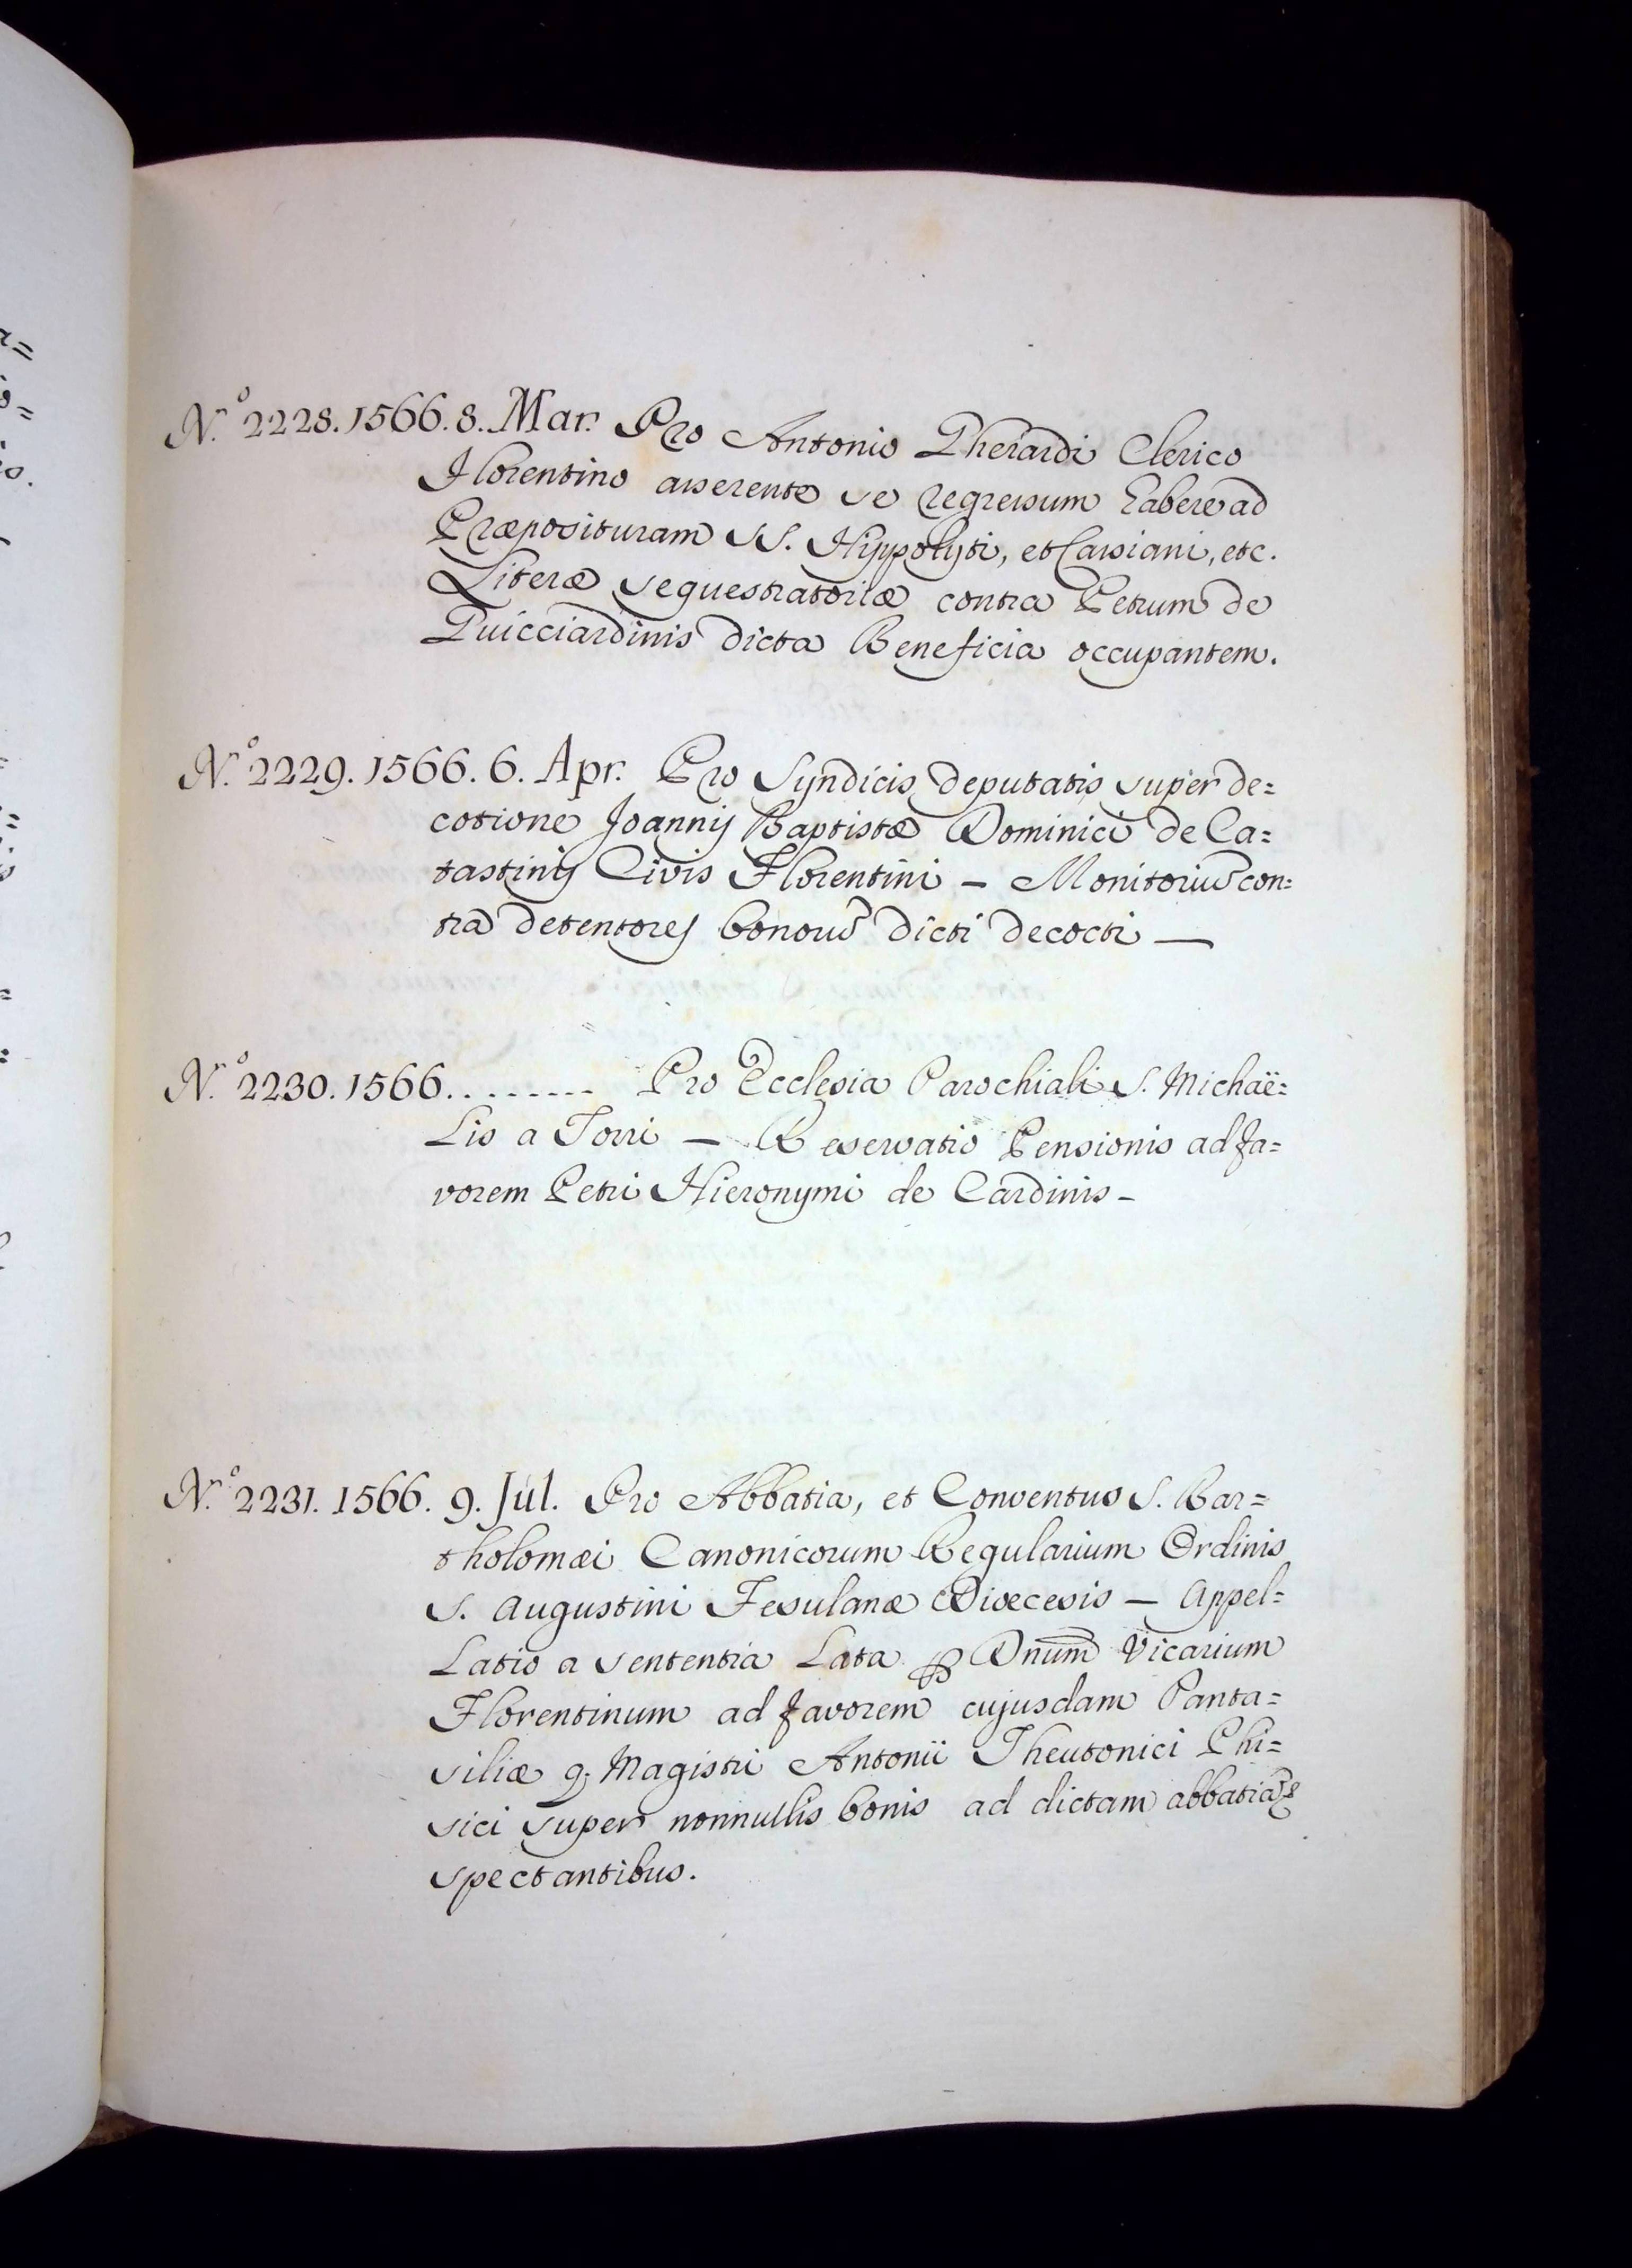 N.º 2228. 1566. 8. Mar. Pro Antonio Gherardi Clerico
Florentino asserente se regressum habere ad
Præposituram SS. Hippolyti, et Cassiani, etc.
Literæ sequestratoriæ contra Petrum de
Guicciardinis dicta Beneficia occupantem.
N.º 2229. 1566. 6. Apr. Pro Syndicis deputatis super de=
cotione Joannis Baptistæ Dominici de Ca=
tastinis Civis Florentini — Monitoriũ con=
tra detentores bonorũ dicti decocti —
N.º 2230. 1566. . . . . . . . . Pro Ecclesia Parochiali S. Michaë=
lis a Torri — Reservatio Pensionis ad fa=
vorem Petri Hieronymi de Cardinis —
N.º 2231. 1566. 9. Jul. Pro Abbatia, et Conventus S. Bar=
tholomæi Canonicorum Regularium Ordinis
S. Augustini Fesulanæ Diœcesis — Appel=
latio a sententia lata ꝑ Dnum̃ Vicarium
Florentinum ad favorem cujusdam Panta=
siliæ q. Magistri Antonii Theutonici Phi=
sici super nonnullis bonis ad dictam abbatiã
spectantibus.